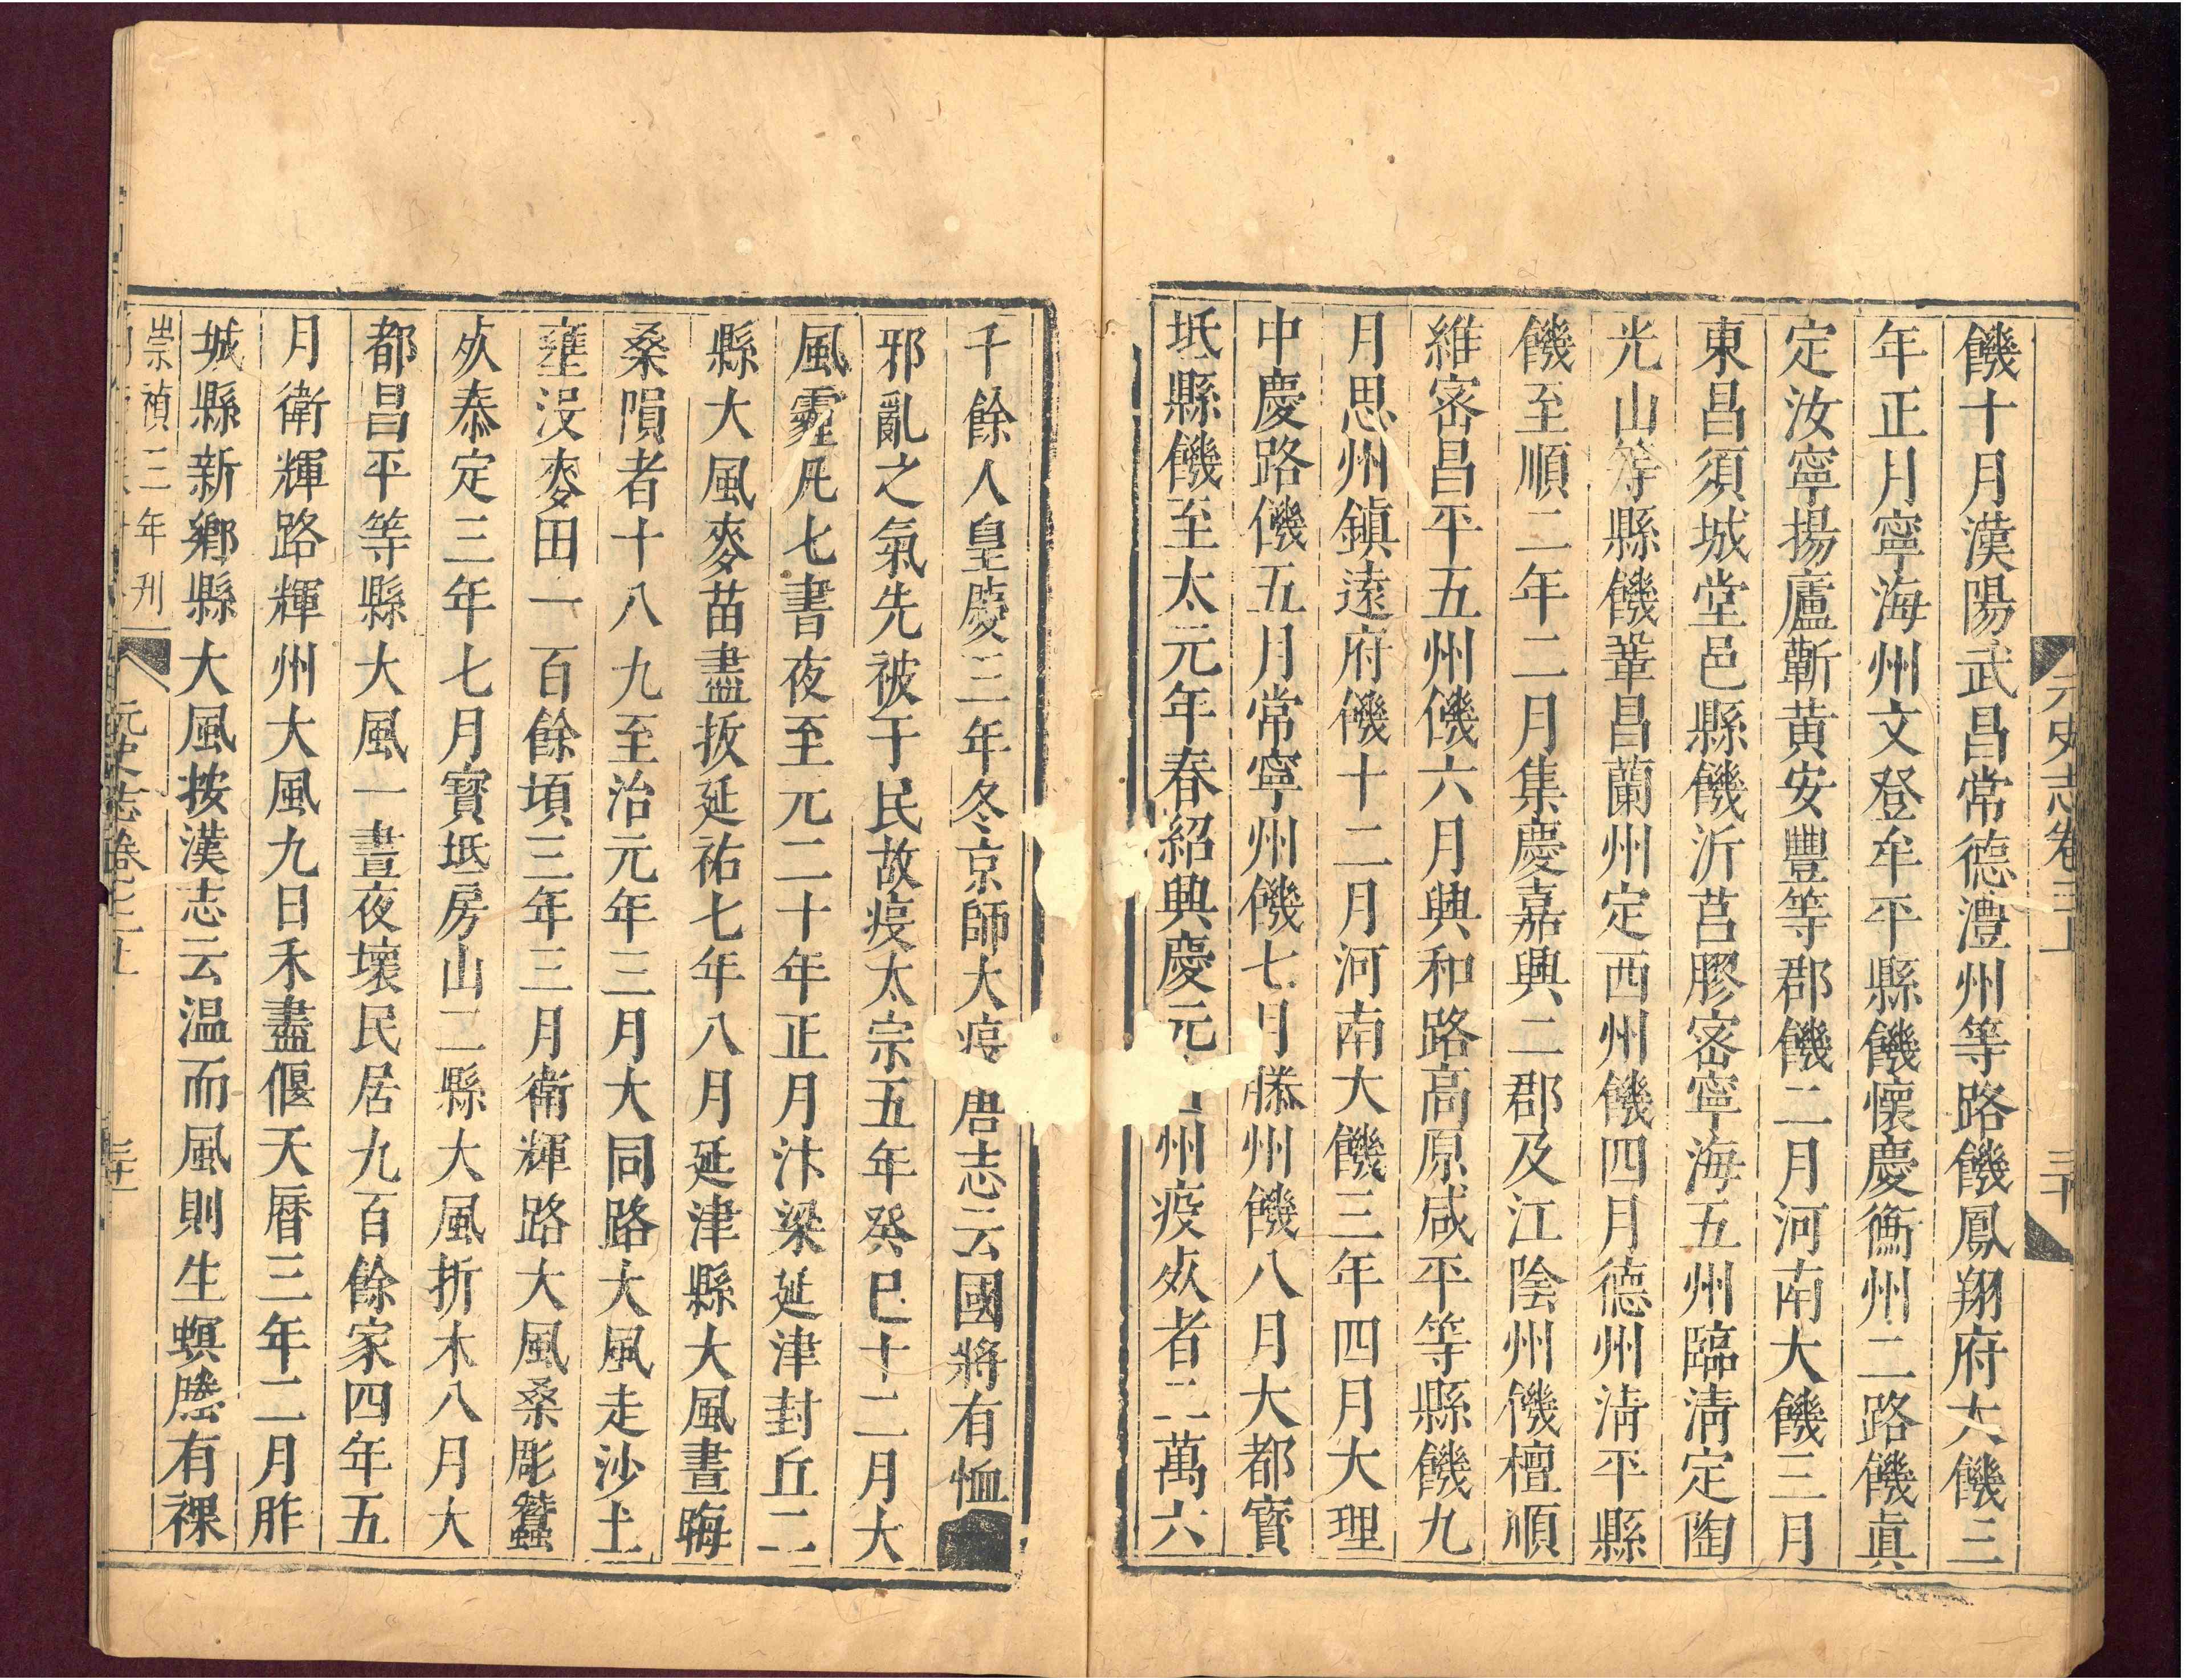 元史志卷三上 三十
饑十月漢陽武昌常德澧州等路饑鳳翔府大饑三
年正月寧海州文登牟平縣饑懷慶衡州二路饑真
定汝寧揚廬蘄黄安豐等郡饑二月河南大饑三月
東昌須城堂邑縣饑沂莒膠密寧海五州臨清定陶
光山等縣饑鞏昌蘭州定西州饑四月德州清平縣
饑至順二年二月集慶嘉興二郡及江陰州饑檀順
維密昌平五州饑六月興和路高原咸平等縣饑九
月思州鎮遠府饑十二月河南大饑三年四月大理
中慶路饑五月常寧州饑七月滕州饑八月大都寳
坻縣饑至太元年春紹興慶元州疫死者二萬六
千餘人皇慶三年冬京師大疫唐志云國將有恤
邪亂之氣先被于民故疫太宗五年癸巳十二月大
風霾凡七晝夜至元二十年正月汴梁延津封丘二
縣大風麥苗盡拔延祐七年八月延津縣大風晝晦
桑隕者十八九至治元年三月大同路大風走沙土
壅没麥田一百餘頃三年三月衛輝路大風桑彫蠶
死泰定三年七月寳坻房山二縣大風折木八月大
都昌平等縣大風一晝夜壞民居九百餘家四年五
月衛輝路輝州大風九日禾盡偃天曆三年二月胙
城縣新鄉縣大風按漢志云温而風則生螟螣有裸
崇禎三年刊 元史志卷三上